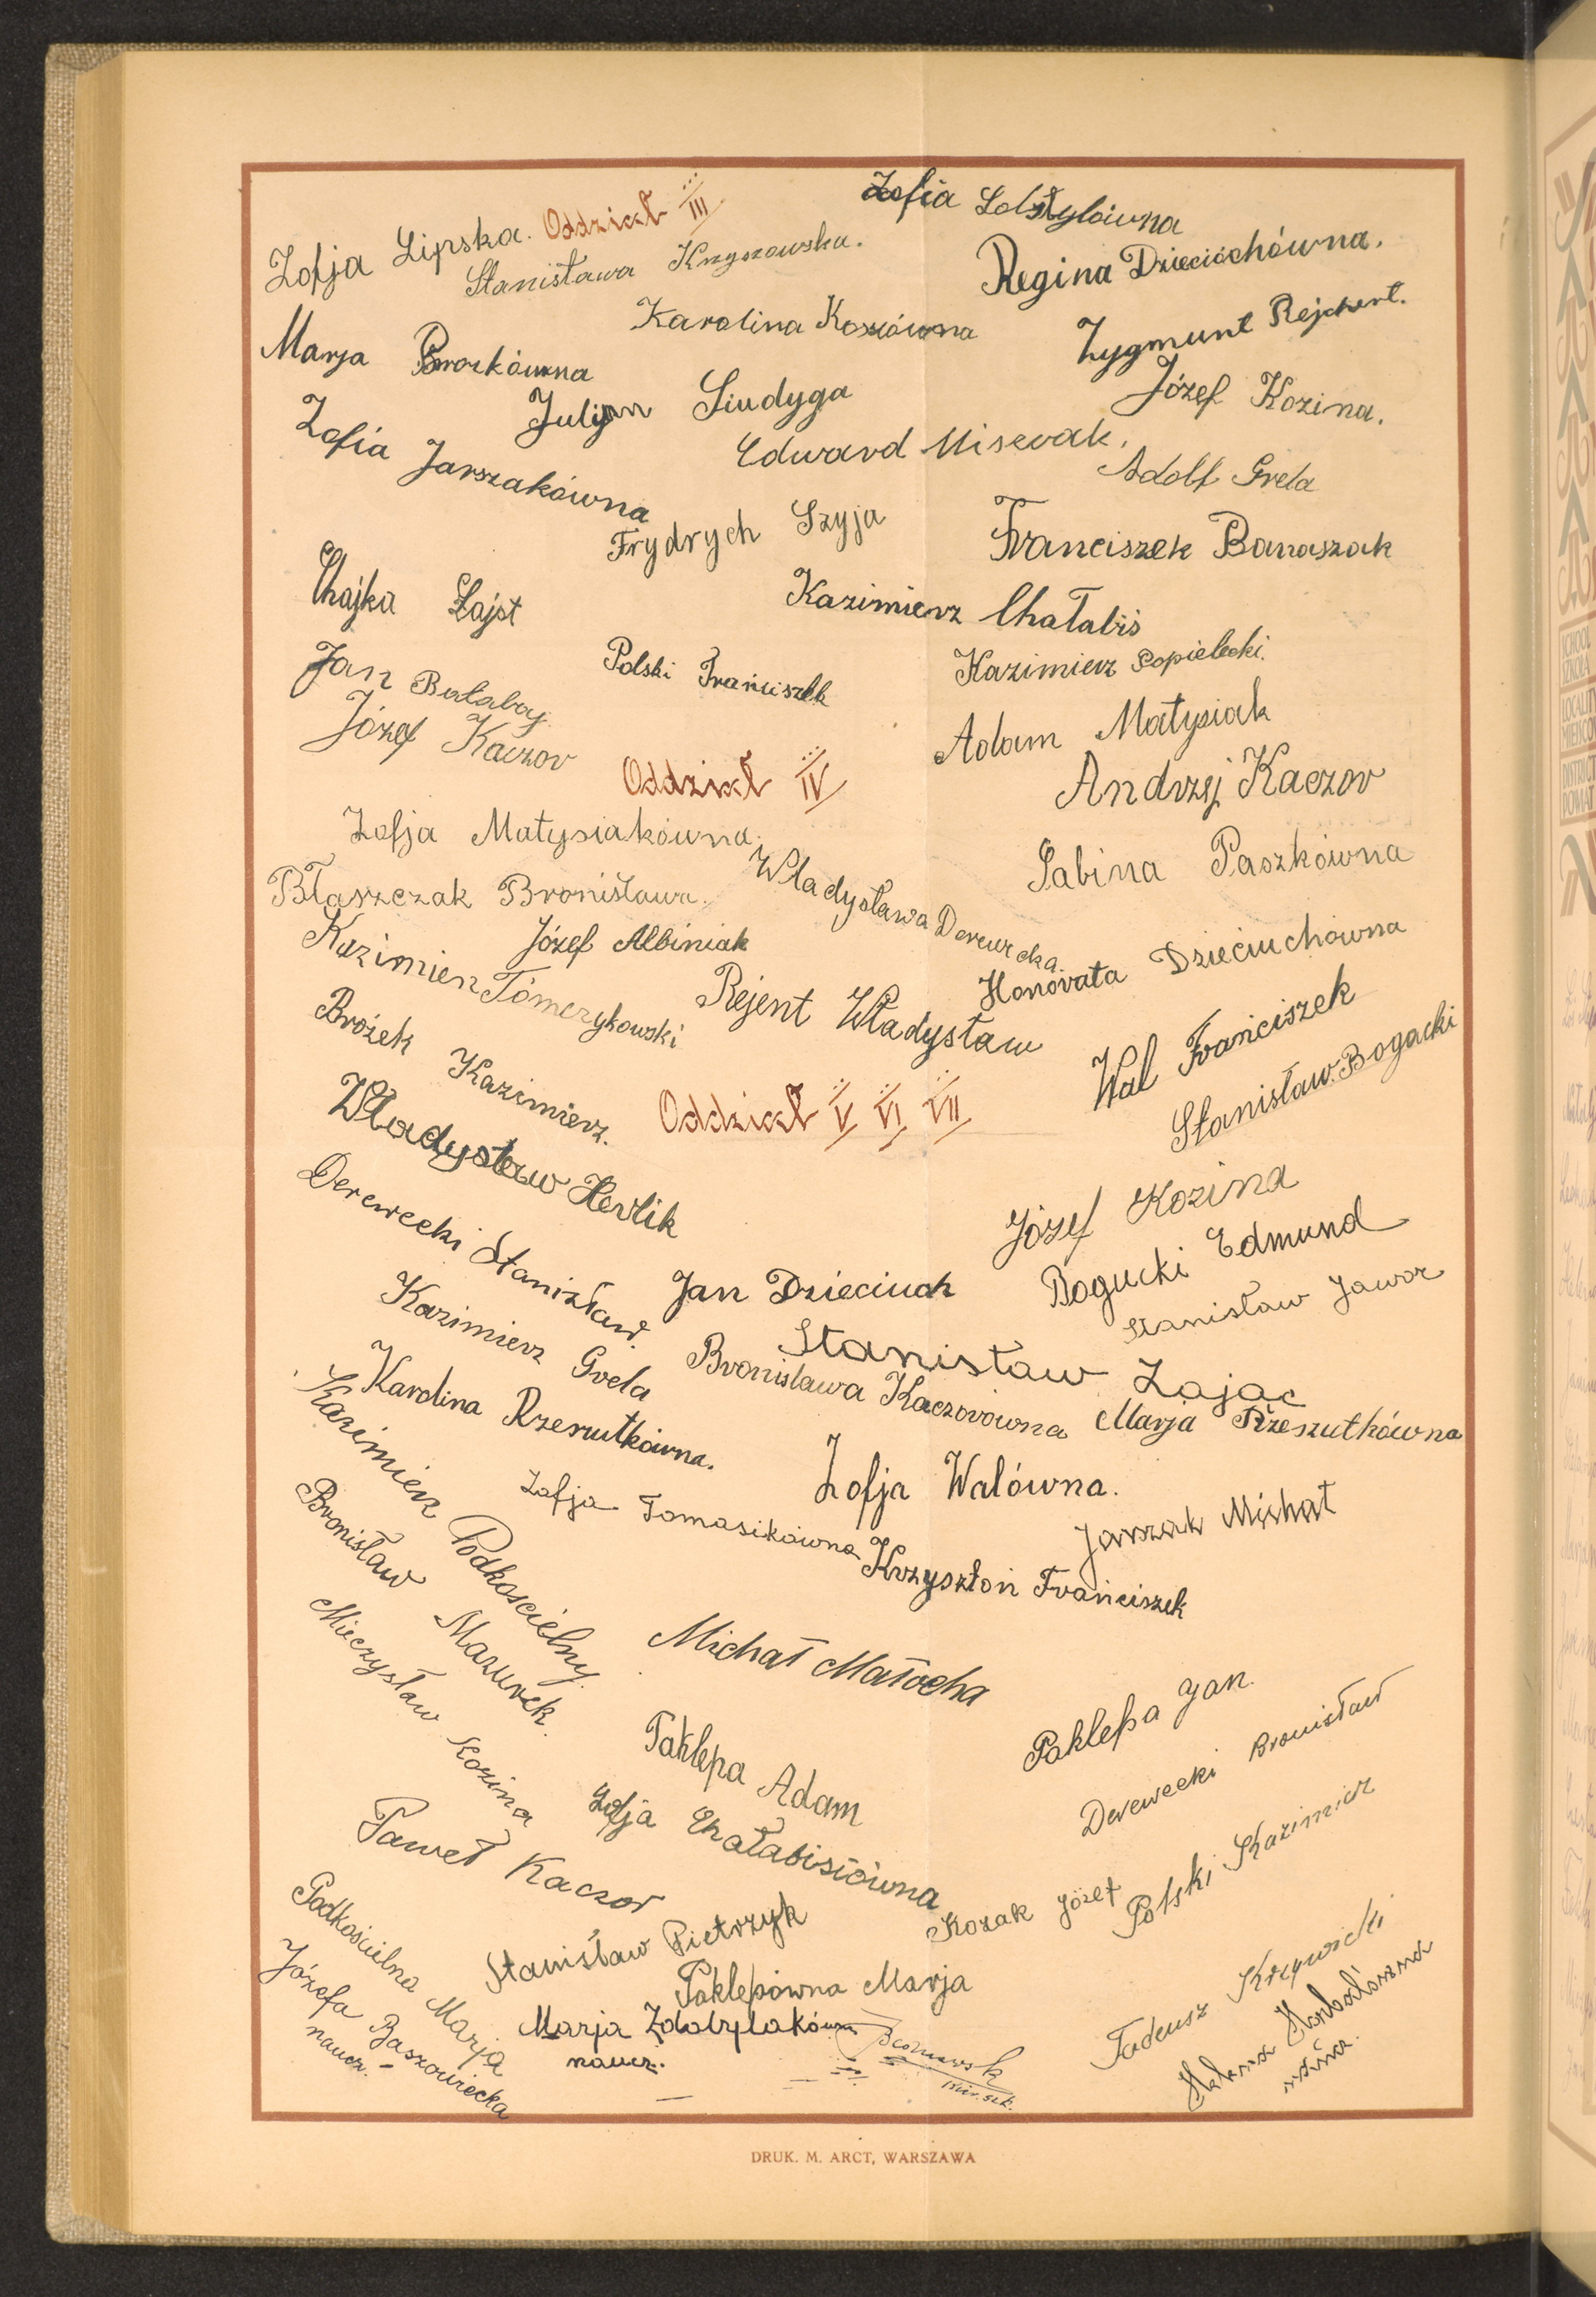 Zofja Lipska. Oddział III
Zofia
Stanisława
Regina Dzieciochówna.
Karolina Koziówna
Zygmunt Rejchert.
Marja Brożkówna
Julijan Siudyga
Józef Kozina.
Zofia Jarszakówna
Edward Miserak.
Adolf Grela
Frydrych Szyja
Franciszek Banaszak
Chajka Łajst
Kazimierz Chałabiś
Kazimierz Popielecki.
Polski Franciszek
Jan Bałabaj
Józef Kaczor
Adam Matysiak
Andrzej Kaczor
Oddział IV
Zofja Matysiakówna.
Sabina Paszkówna
Błaszczak Bronisława.
Władysława Derewecka.
Józef Albiniak
Honorata Dzieciuchówna
Kazimierz Tomczykowski
Rejent Władysław
Wal Franciszek
Brożek Kazimierz.
Stanisław Bogacki
Oddział V VI VII
Władysław Herlik
Józef Kozina
Derewecki Stanisław.
Jan Dzieciuch
Bogucki Edmund
Stanisław Jawor
Kazimierz Grela
Stanisław Zając
Bronisława Kaczorówna
Marja Rzeszutkówna
Karolina Rzeszutkówna.
Zofja Walówna.
Kazimierz Podkościelny.
Zofja Tomasikówna
Jarszak Michał
Krzysztoń Franciszek
Bronisław Mazurek.
Michał Małocha
Mieczysław Kozina
Paklepa Jan.
Paklepa Adam
Derewecki Bronisław
Zofja Chałabisiówna
Polski Kazimierz
Paweł Kaczor
Kozak Józef
Stanisław Pietrzyk
Podkościelna Marja
Paklepówna Marja
Tadeusz Krzywicki
Józefa Baszowiecka
naucz.
Marja Zdobylakówna
naucz.
kier. szk.
Helena
DRUK. M. ARCT, WARSZAWA
SCHOOL
SZKOŁA